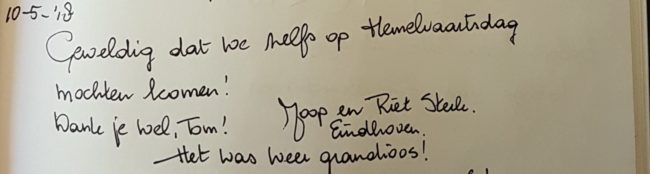 10-5-'18
Geweldig dat we zelfs op Hemelvaartsdag
mochten komen!
Dank je wel, Tom!
Joop en Riet
Eindhoven.
Het was weer grandioos!